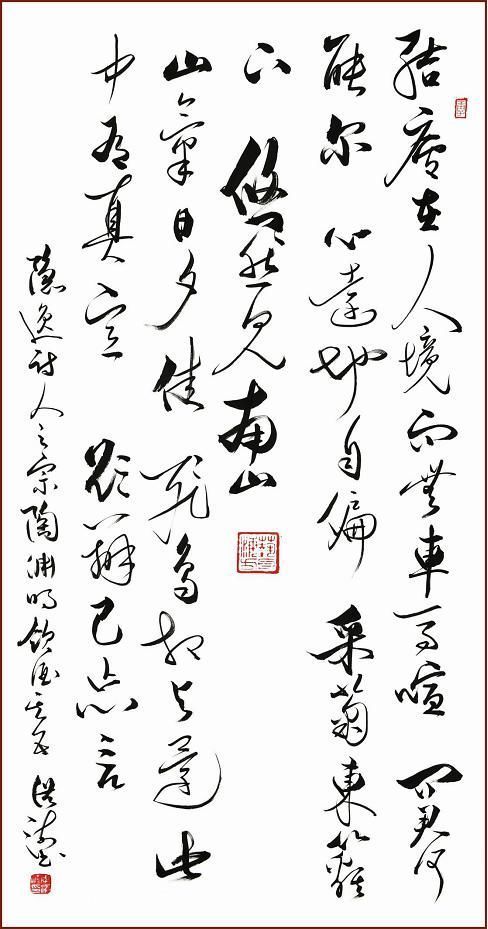 結廬在人境而無車馬喧 問君何
能尔 心遠地自偏 采菊東籬
下 悠然見南山
山氣日夕佳 飛鳥相与還 此
中有真意 欲辨已忘言
隱逸詩人之宗陶淵明飲酒其五